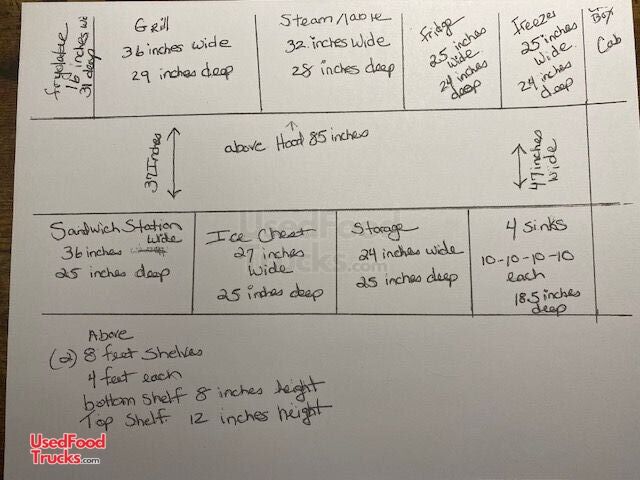 fryolator
16 inches wi
31 deep
Grill
36 inches wide
29 inches deep
Steam/table
32 inches wide
28 inches deep
Fridge
25 inches
wide
24 inches
deep
Freezer
25 inches
wide
24 inches
deep
Box
Cab
37 inches
above Hood 85 inches
47 inches
wide
Sandwich Station
36 inches wide
25 inches deep
Ice Chest
27 inches
wide
25 inches deep
Storage
24 inches wide
25 inches deep
4 Sinks
10-10-10-10
each
18.5 inches
deep
UsedFood
Trucks.com
Above
(2) 8 feet Shelves
4 feet each
bottom Shelf 8 inches height
Top Shelf 12 inches height
UsedFood
Trucks.com